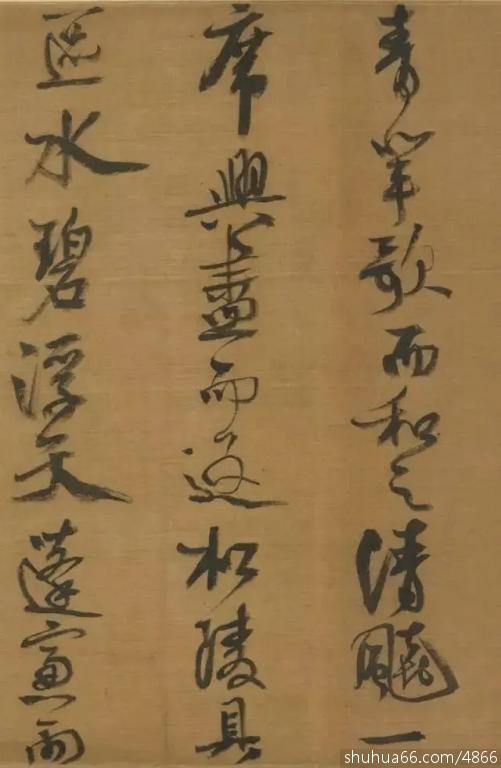 青歌而和之清飈一
席興盡而返松陵具
區水碧浮天蓬窗雨
shuhua66.com/4866